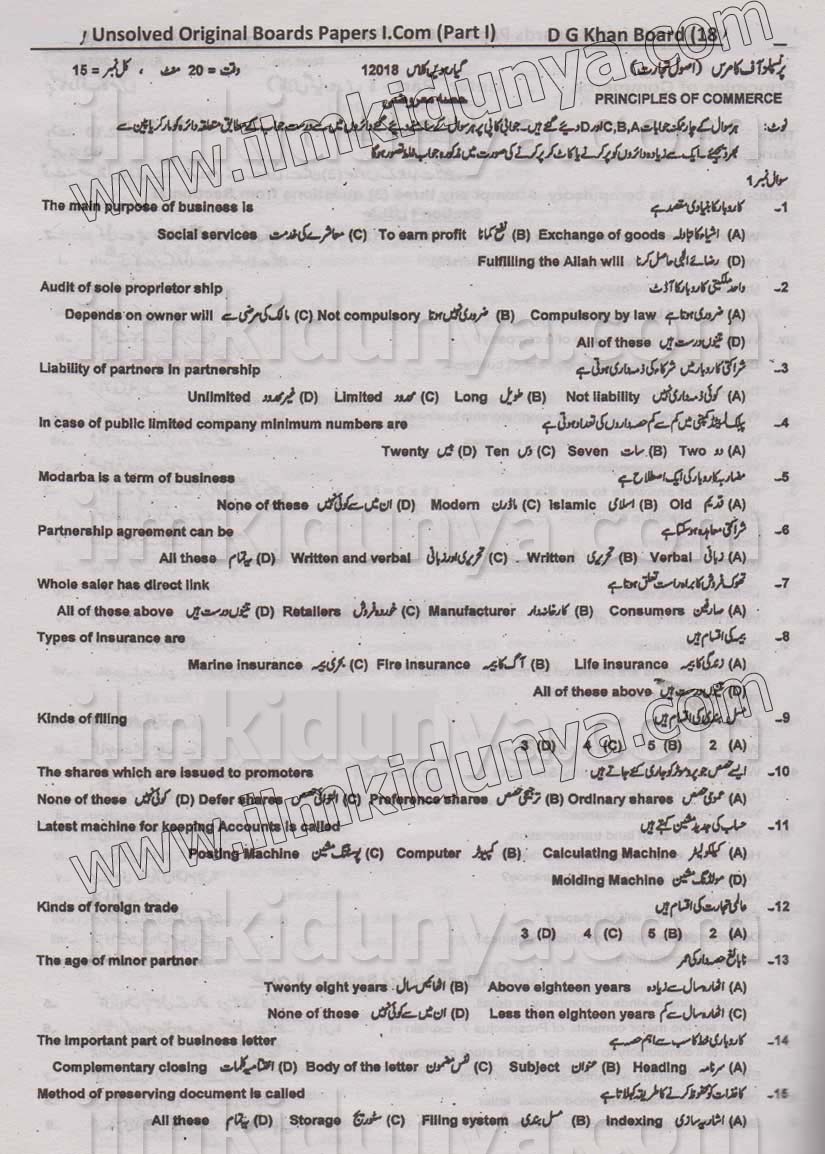 Unsolved Original Boards Papers I.Com (Part I) D G Khan Board (18
پرنسپلز آف کامرس (اصول تجارت) گیارہویں کلاس 12018 وقت = 20 منٹ ، کل نمبر = 15
PRINCIPLES OF COMMERCE حصہ معروضی
نوٹ: ہر سوال کے چار ممکنہ جوابات C,B,A اور D دیئے گئے ہیں۔ جوابی کاپی پر ہر سوال کے سامنے دیئے گئے دائروں میں سے درست جواب کے مطابق متعلقہ دائرہ کو مارکر یا پین سے
بھر دیجئے۔ ایک سے زیادہ دائروں کو پر کرنے یا کاٹ کر پر کرنے کی صورت میں مذکورہ جواب غلط تصور ہوگا
سوال نمبر 1
1- کاروبار کا بنیادی مقصد ہے The main purpose of business is
(A) اشیاء کا تبادلہ Exchange of goods (B) نفع کمانا To earn profit (C) معاشرے کی خدمت Social services
(D) رضائے الٰہی حاصل کرنا Fulfilling the Allah will
2- واحد ملکیتی کاروبار کا آڈٹ Audit of sole proprietor ship
(A) ضروری ہوتا ہے Compulsory by law (B) ضروری نہیں ہوتا Not compulsory (C) مالک کی مرضی سے Depends on owner will
(D) تینوں درست ہیں All of these
3- شراکتی کاروبار میں شرکاء کی ذمہ داری ہوتی ہے Liability of partners in partnership
(A) کوئی ذمہ داری نہیں Not liability (B) طویل Long (C) محدود Limited (D) غیر محدود Unlimited
4- پبلک لمیٹڈ کمپنی میں کم سے کم حصہ داروں کی تعداد ہوتی ہے In case of public limited company minimum numbers are
(A) دو Two (B) سات Seven (C) دس Ten (D) بیس Twenty
5- مضاربہ کاروبار کی ایک اصطلاح ہے Modarba is a term of business
(A) قدیم Old (B) اسلامی Islamic (C) ماڈرن Modern (D) ان میں سے کوئی نہیں None of these
6- شراکتی معاہدہ ہو سکتا ہے Partnership agreement can be
(A) زبانی Verbal (B) تحریری Written (C) تحریری اور زبانی Written and verbal (D) یہ تمام All these
7- تھوک فروش کا براہ راست تعلق ہوتا ہے Whole saler has direct link
(A) صارفین Consumers (B) کارخانہ دار Manufacturer (C) خوردہ فروش Retailers (D) تینوں درست ہیں All of these above
8- بیمہ کی اقسام ہیں Types of Insurance are
(A) زندگی کا بیمہ Life insurance (B) آگ کا بیمہ Fire insurance (C) بحری بیمہ Marine insurance
(D) تینوں درست ہیں All of these above
9- مسل بندی کی اقسام ہیں Kinds of filing
(A) 2 (B) 5 (C) 4 (D) 3
10- ایسے حصص جو پروموٹرز کو جاری کئے جاتے ہیں The shares which are issued to promoters
(A) عمومی حصص Ordinary shares (B) ترجیحی حصص Preference shares (C) التوائی حصص Defer shares (D) کوئی نہیں None of these
11- حساب کی جدید مشین کہتے ہیں Latest machine for keeping Accounts is called
(A) کیلکولیٹر Calculating Machine (B) کمپیوٹر Computer (C) پوسٹنگ مشین Posting Machine
(D) مولڈنگ مشین Molding Machine
12- عالمی تجارت کی اقسام ہیں Kinds of foreign trade
(A) 2 (B) 5 (C) 4 (D) 3
13- نابالغ حصہ دار کی عمر The age of minor partner
(A) اٹھارہ سال سے زیادہ Above eighteen years (B) اٹھائیس سال Twenty eight years
(C) اٹھارہ سال سے کم Less then eighteen years (D) ان میں سے کوئی نہیں None of these
14- کاروباری خط کا سب سے اہم حصہ ہے The important part of business letter
(A) سرنامہ Heading (B) عنوان Subject (C) نفس مضمون Body of the letter (D) اختتامیہ کلمات Complementary closing
15- کاغذات کو محفوظ کرنے کا طریقہ کہلاتا ہے Method of preserving document is called
(A) اشاریہ سازی Indexing (B) مسل بندی Filing system (C) سٹوریج Storage (D) یہ تمام All these
www.ilmkidunya.com
www.ilmkidunya.com
ilmkidunya.com
ilmkidunya.com
ilmkidunya.com
ilmkidunya.com
ilmkidunya.com
ilmkidunya.com